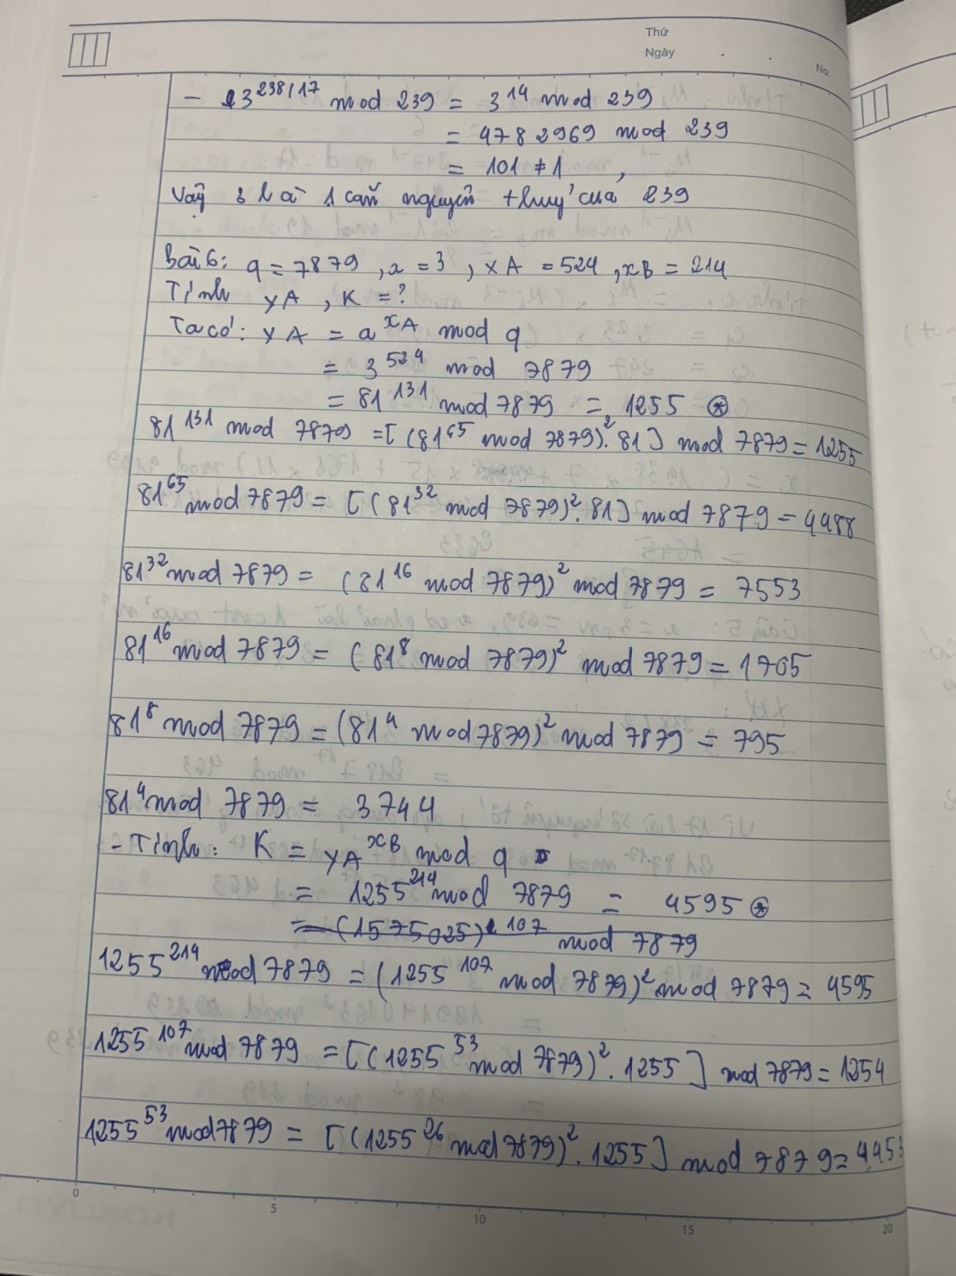 Thứ
Ngày
No.
- 3^238/17 mod 239 = 3^14 mod 239
= 4782969 mod 239
= 101 ≠ 1,
Vậy 3 là 1 căn nguyên thuỷ của 239
Bài 6: q = 7879, a = 3, xA = 524, xB = 214
Tính yA, K = ?
Ta có: yA = a^xA mod q
= 3^524 mod 7879
= 81^131 mod 7879 = 1255 ⊛
81^131 mod 7879 = [(81^65 mod 7879)^2.81] mod 7879 = 1255
81^65 mod 7879 = [(81^32 mod 7879)^2.81] mod 7879 = 4488
81^32 mod 7879 = (81^16 mod 7879)^2 mod 7879 = 7553
81^16 mod 7879 = (81^8 mod 7879)^2 mod 7879 = 1705
81^8 mod 7879 = (81^4 mod 7879)^2 mod 7879 = 795
81^4 mod 7879 = 3744
- Tính: K = yA^xB mod q
= 1255^214 mod 7879 = 4595 ⊛
= (1575025)^107 mod 7879
1255^214 mod 7879 = (1255^107 mod 7879)^2 mod 7879 = 4595
1255^107 mod 7879 = [(1255^53 mod 7879)^2.1255] mod 7879 = 1254
1255^53 mod 7879 = [(1255^26 mod 7879)^2.1255] mod 7879 = 4453
0 5 10 15 20